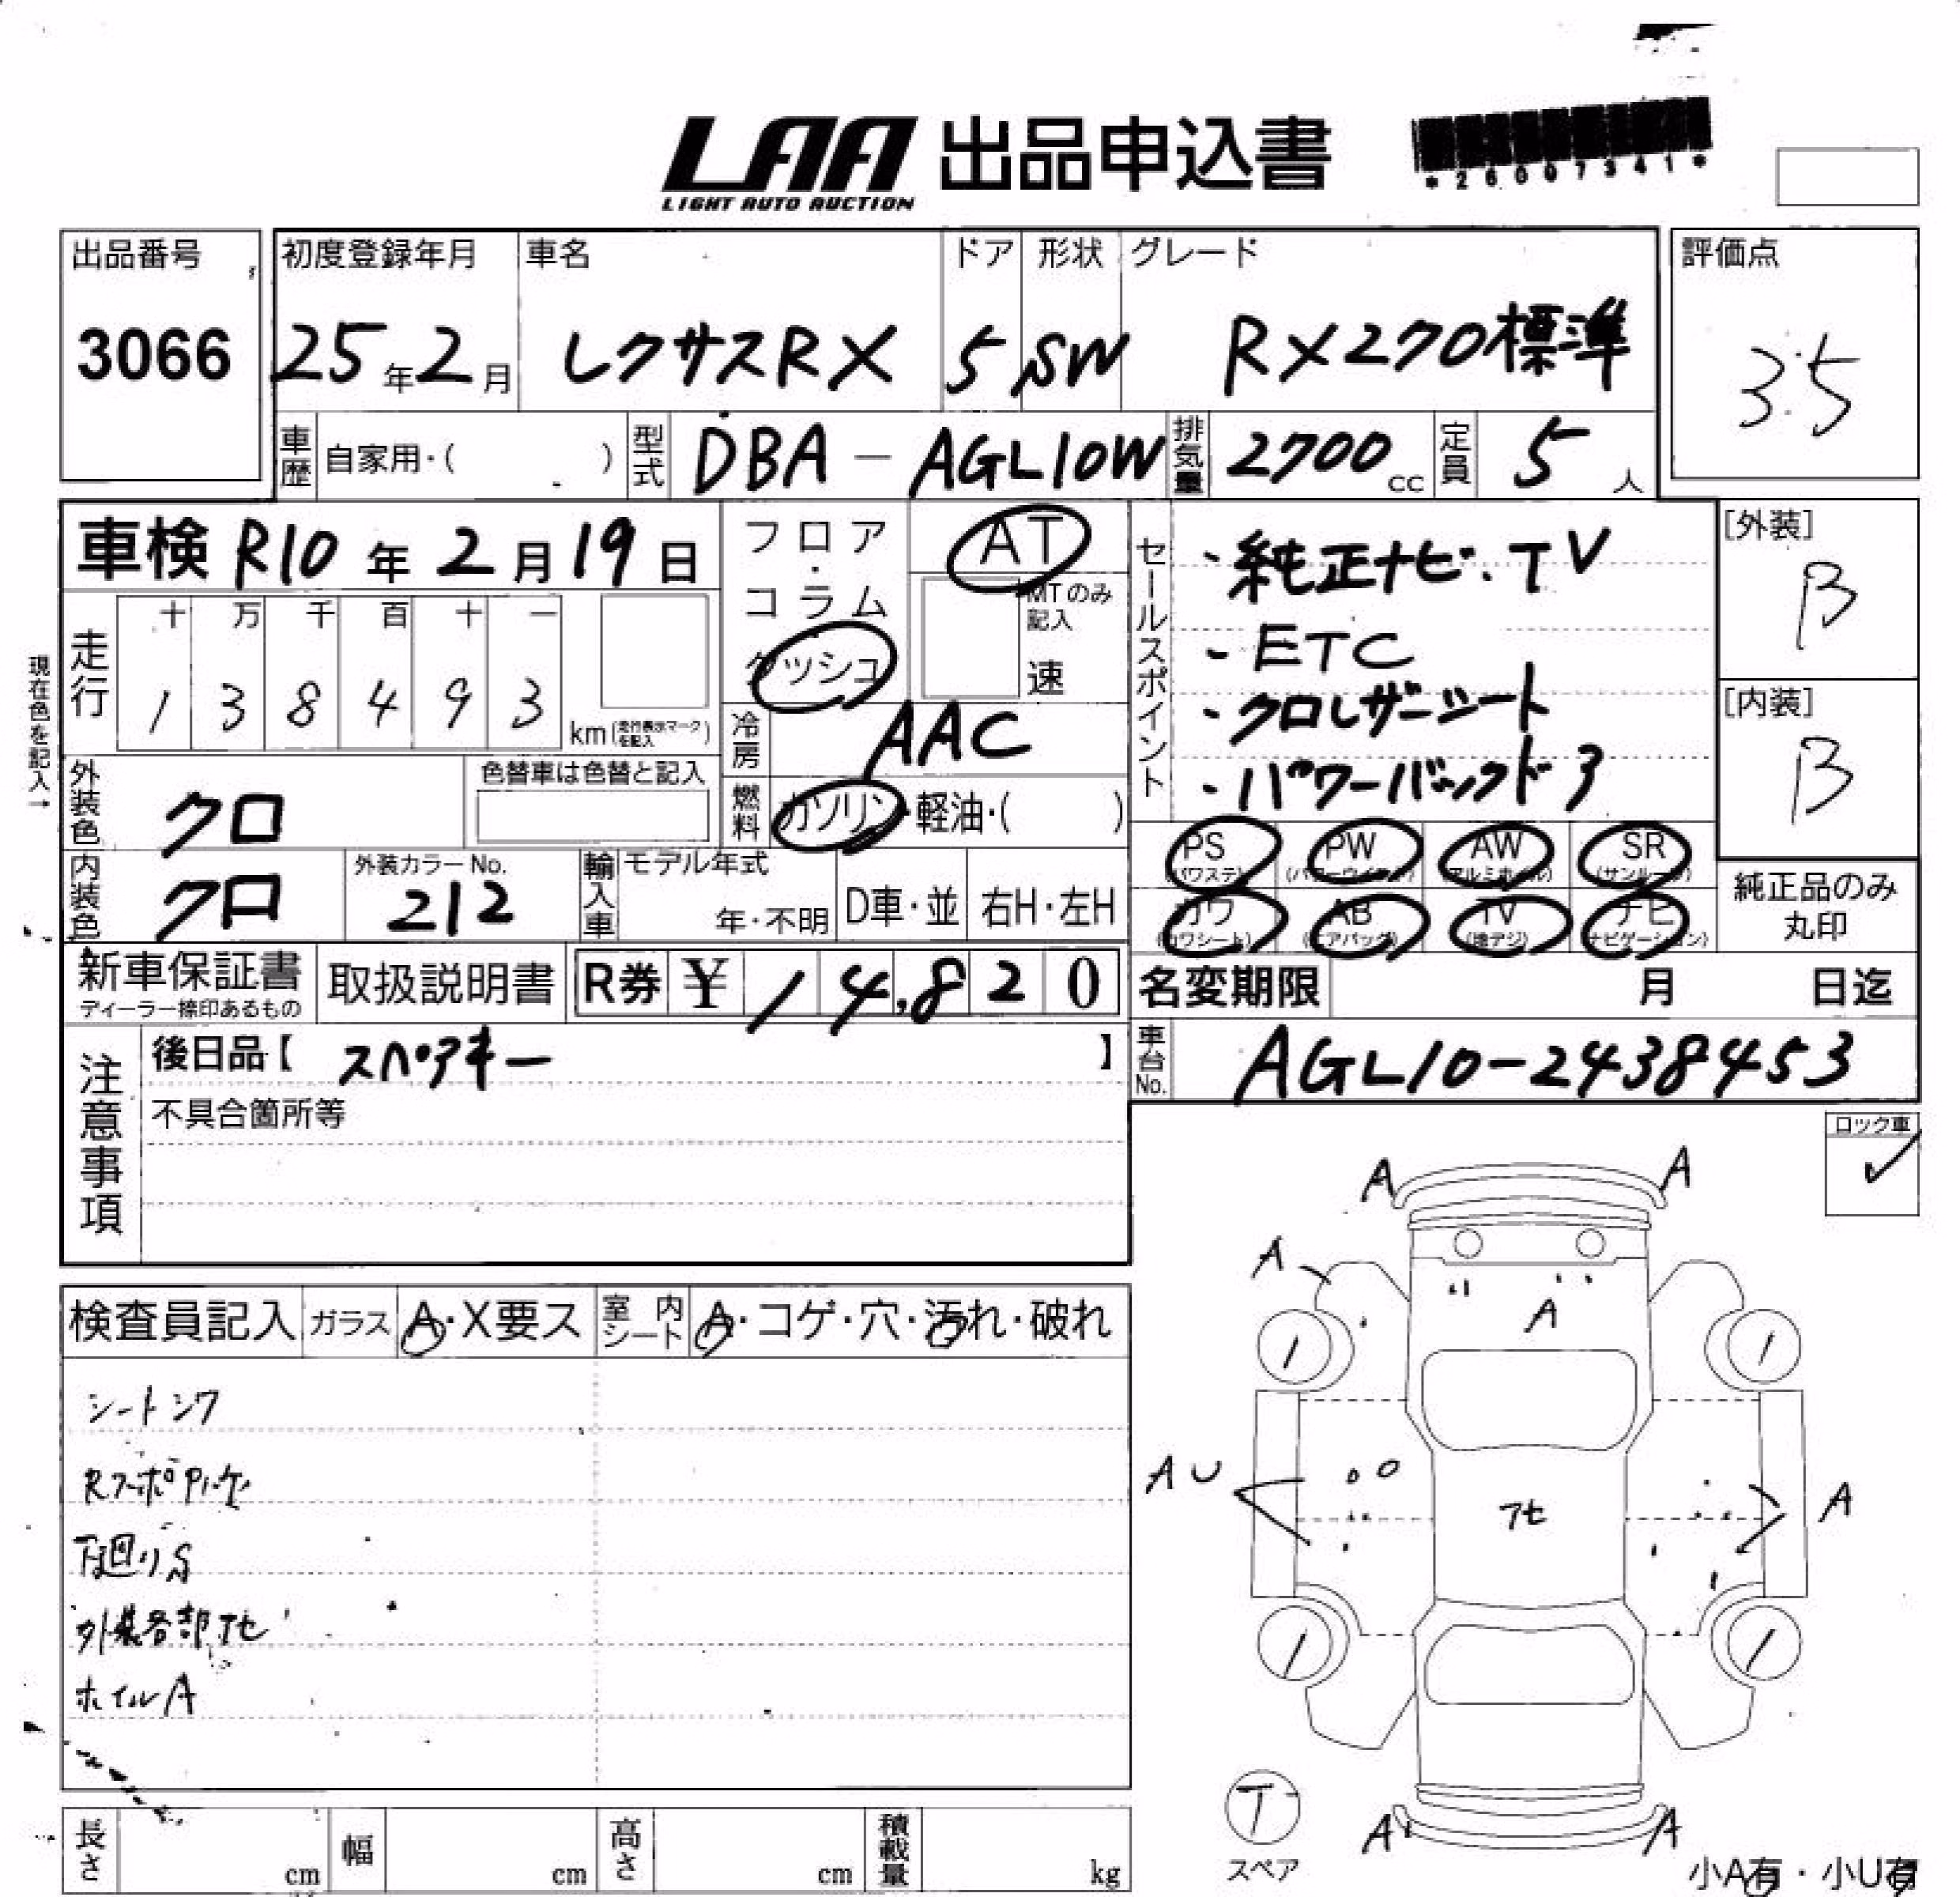 LAA 出品申込書
LIGHT AUTO AUCTION
*26007341*
出品番号
3066
初度登録年月
25年2月
車名
レクサスRX
ドア
5
形状
SW
グレード
RX270標準
評価点
3.5
車歴 自家用・( )
型式 DBA-AGL10W
排気量 2700cc
定員 5人
車検 R10年2月19日
フロア・コラム・ダッシュ
AT
MTのみ記入
速
セールスポイント
・純正ナビ.TV
-ETC
・クロレザーシート
・パワーバックドア
[外装]
B
[内装]
B
現在色を記入→
走行
十 万 千 百 十 一
1 3 8 4 9 3
km(走行表示マークを記入)
冷房 AAC
外装色 クロ
色替車は色替と記入
燃料 ガソリン・軽油・( )
内装色 クロ
外装カラーNo.
212
輸入車
モデル年式
年・不明
D車・並
右H・左H
PS (パワステ)
PW (パワーウインドウ)
AW (アルミホイル)
SR (サンルーフ)
カワ (カワシート)
AB (エアバッグ)
TV (地デジ)
ナビ (ナビゲーション)
純正品のみ
丸印
新車保証書
ディーラー捺印あるもの
取扱説明書
R券 ¥14,820
名変期限 月 日迄
車台No. AGL10-2438453
注意事項
後日品【 スペアキー 】
不具合箇所等
ロック車
✓
検査員記入
ガラス A・X要ス
室内シート A・コゲ・穴・汚れ・破れ
シートシワ
下廻りS
外装各部アセ
ホイルA
A A
A
A
AU
アセ
A
A A
T
スペア
長さ cm
幅 cm
高さ cm
積載量 kg
小A有・小U有